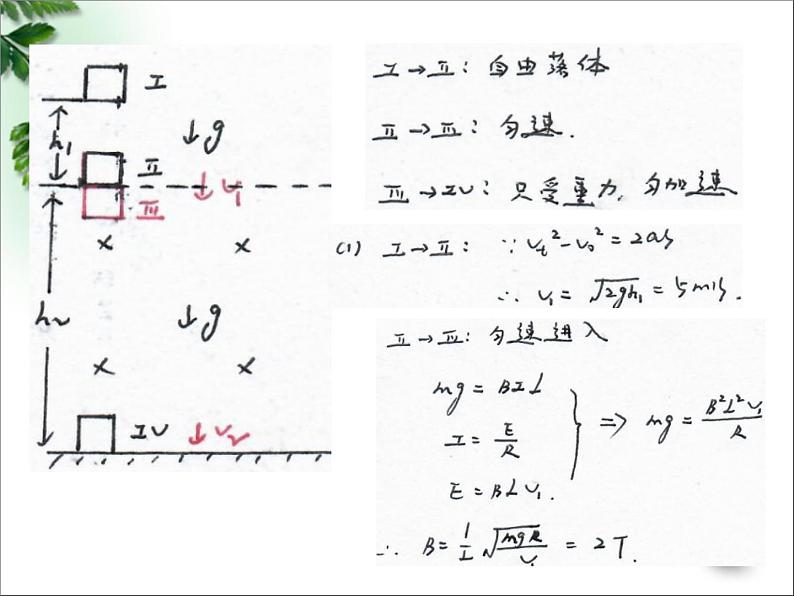 I
h₁
↓g
II
↓V₁
III
× ×
h₂
↓g
× ×
IV ↓V₂
I→II: 自由落体
II→III: 匀速.
III→IV: 只受重力, 匀加速
(1) I→II: ∵ Vt²-V₀²=2as
∴ V₁=√2gh₁=5m/s.
II→III: 匀速进入
mg=BIL
I=E/R
E=BLV₁.
⇒ mg=B²L²V₁/R
∴ B=1/L √mgR/V₁ = 2T.